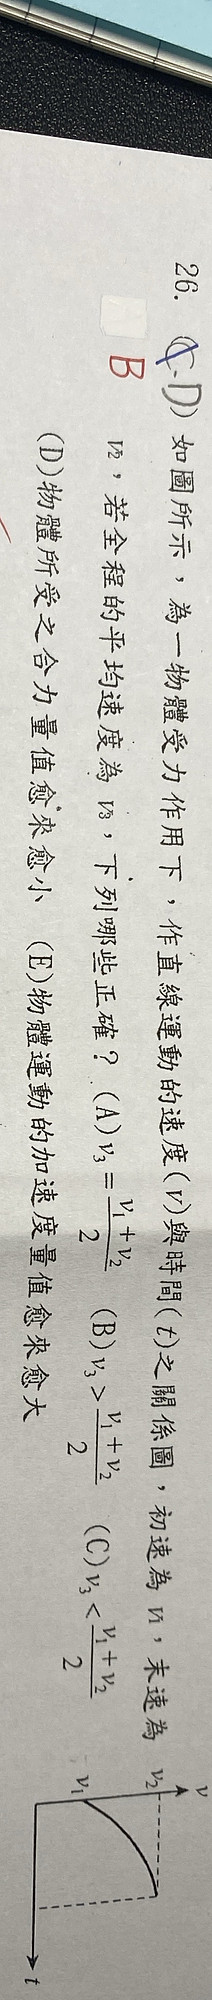 26. (C.D) 如圖所示，為一物體受力作用下，作直線運動的速度(v)與時間(t)之關係圖，初速為 v₁，末速為
B
v₂，若全程的平均速度為 v₃，下列哪些正確？(A) v₃ = (v₁+v₂)/2 (B) v₃ > (v₁+v₂)/2 (C) v₃ < (v₁+v₂)/2
(D)物體所受之合力量值愈來愈小 (E)物體運動的加速度量值愈來愈大
v
v₂
v₁
t